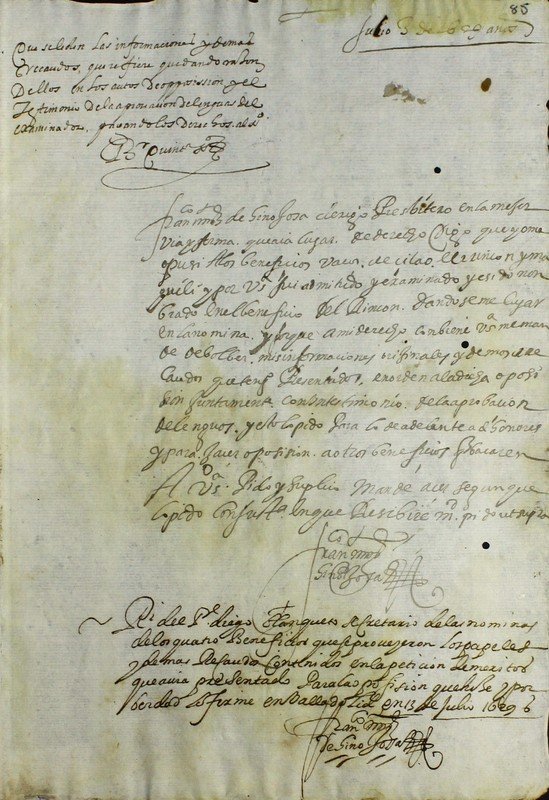 85
Julio 3 de 1629 años
Que se le den las informaciones y demas
recaudos, que refiere quedando razon
dellos en los autos de oppossission y el
testimonio de la aprouacion de lenguas del
examinador, pagando los derechos al sº.
franco muñoz de Hinojosa clerigo Presbitero en la mejor
via y forma que aia lugar de derecho Digo que yo me
opusi a los beneficios vacos de cilao, el rincon y ma
quili y por Vs fui admitido y examinado y e sido non
brado en el beneficio del Rincon. dandoseme lugar
en la nomina. y porque a mi derecho conbiene Vsª me man
de debolber mis informaciones originales y demos rre
caudos que tengo Presentados, en orden a la dicha oposi
cion juntamente con testimonio de la aprobacion
de lenguas. y esto lo pido para lo de adelante a
y para hacer oposision a otros beneficios
A Vsª. Pido y suplico mande aser segun que
lo pido con justª. en que Resibire md. pido
franco muñoz
Hinojosa
Rl del Pe diego secretario de las nominas
de los quatro Beneficios que se proveyeron los papeles
y demas Resaudo contenidos en la peticion de meritos
que auia presentado Para la oposision que hise y por
berdad lo firme en Valladolid en 13 de Julio 1629 as
franco muñoz
de Hinojossa